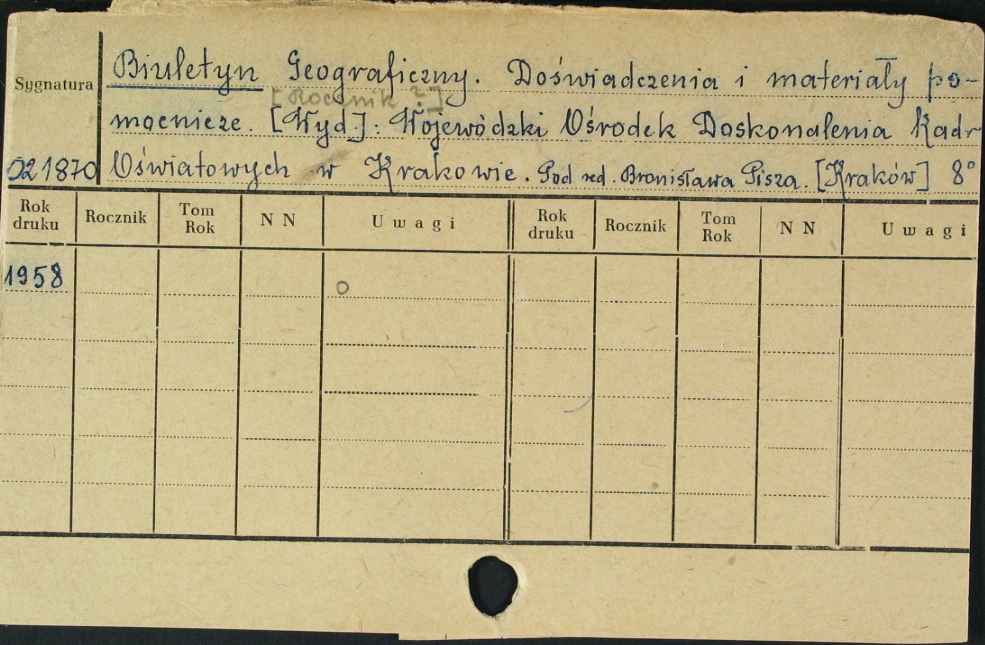 Sygnatura
Biuletyn Geograficzny. Doświadczenia i materiały po-
[Rocznik ?]
mocnicze. [Wyd]: Wojewódzki Ośrodek Doskonalenia Kadr
021870 Oświatowych w Krakowie. Pod red. Bronisława Pisza. [Kraków] 8°
Rok druku Rocznik Tom Rok NN Uwagi Rok druku Rocznik Tom Rok NN Uwagi
1958 o